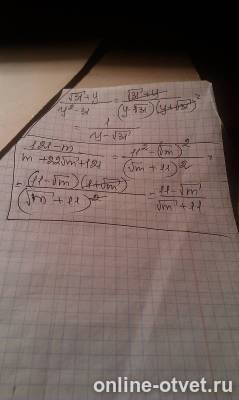 (√31 + y)/(y² - 31) = (√31 + y)/((y - √31)(y + √31)) =
= 1/(y - √31)
(121 - m)/(m + 22√m + 121) = (11² - √m)²/(√m + 11)² =
= (11 - √m)(11 + √m)/(√m + 11)² = (11 - √m)/(√m + 11)
online-otvet.ru